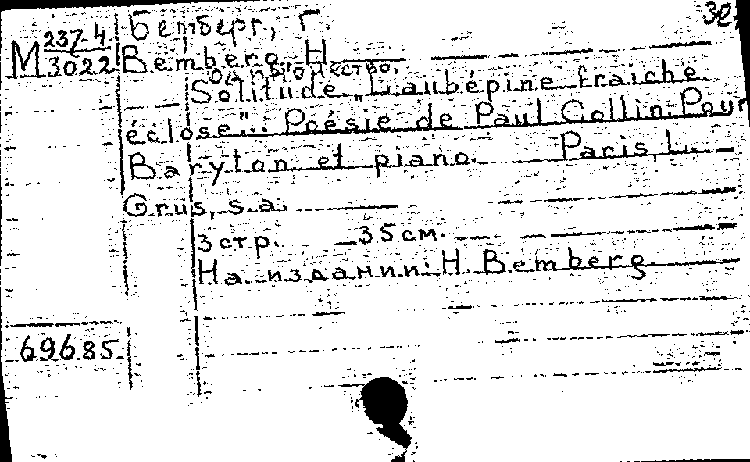 Бемберг, Г. 32
М 237-4
3022 Bemberg, H.
Одиночество.
Solitude „L'aubépine fraiche
éclose"... Poésie de Paul Collin. Pour
Baryton et piano. Paris, L.
Grus, s.a.
3 стр. 35 см.
На издании: H. Bemberg.
69685